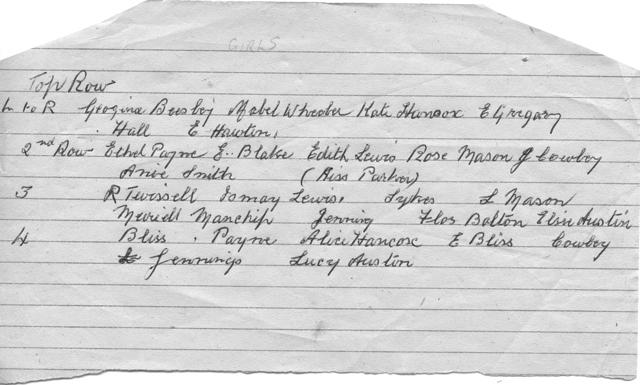 GIRLS
Top Row
L to R Georgina Beesley Mabel Wheeler Kate Hancox E Gregory
Hall E Hawtin,
2nd Row Ethel Payne E. Blake Edith Lewis Rose Mason J Cowley
Annie Smith (Miss Parker)
3 R Twissell Ismay Lewis, Sykes L Mason
Meriell Manchip Jenning Flos Bolton Elsie Austin
4 Bliss . Payne Alice Hancox E Bliss Cowley
Jennings Lucy Austin